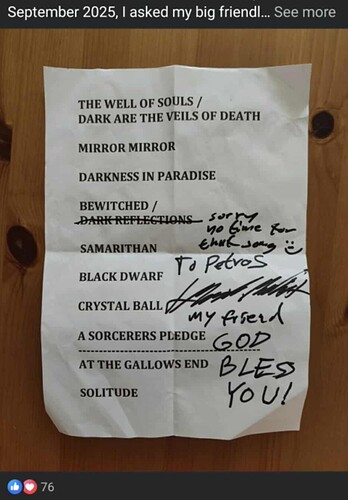 September 2025, I asked my big friendl... See more
THE WELL OF SOULS /
DARK ARE THE VEILS OF DEATH
MIRROR MIRROR
DARKNESS IN PARADISE
BEWITCHED /
DARK REFLECTIONS
sorry
no time for
that song
SAMARITHAN
To Petros
BLACK DWARF
CRYSTAL BALL
my friend
A SORCERERS PLEDGE
GOD
AT THE GALLOWS END
BLESS
SOLITUDE
YOU!
76